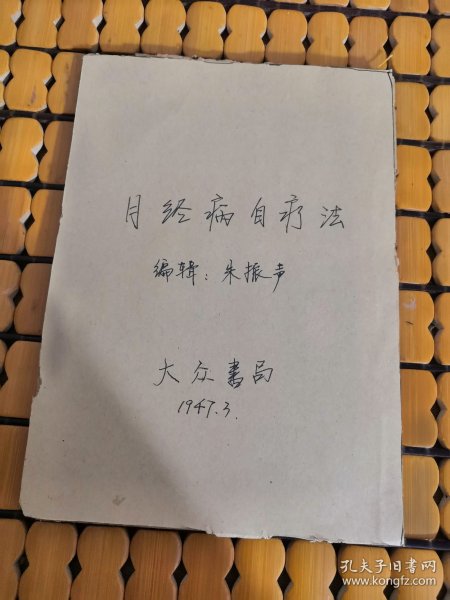 月经病自疗法
编辑：朱振声
大众書局
1947.3.
孔夫子旧书网
www.kongfz.com